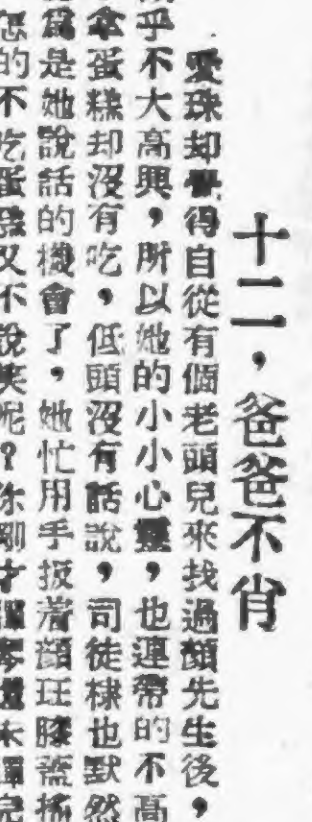 十二，爸爸不肖
愛珠却覺得自從有個老頭兒來找過顏先生後，
乎不大高興，所以她的小小心靈，也連帶的不高
拿蛋糕却沒有吃，低頭沒有話說，司徒棣也默然
爲是她說話的機會了，她忙用手扳着顏玨膝蓋搖
怎的不吃蛋糕又不說笑呢？你剛才彈琴還未彈完